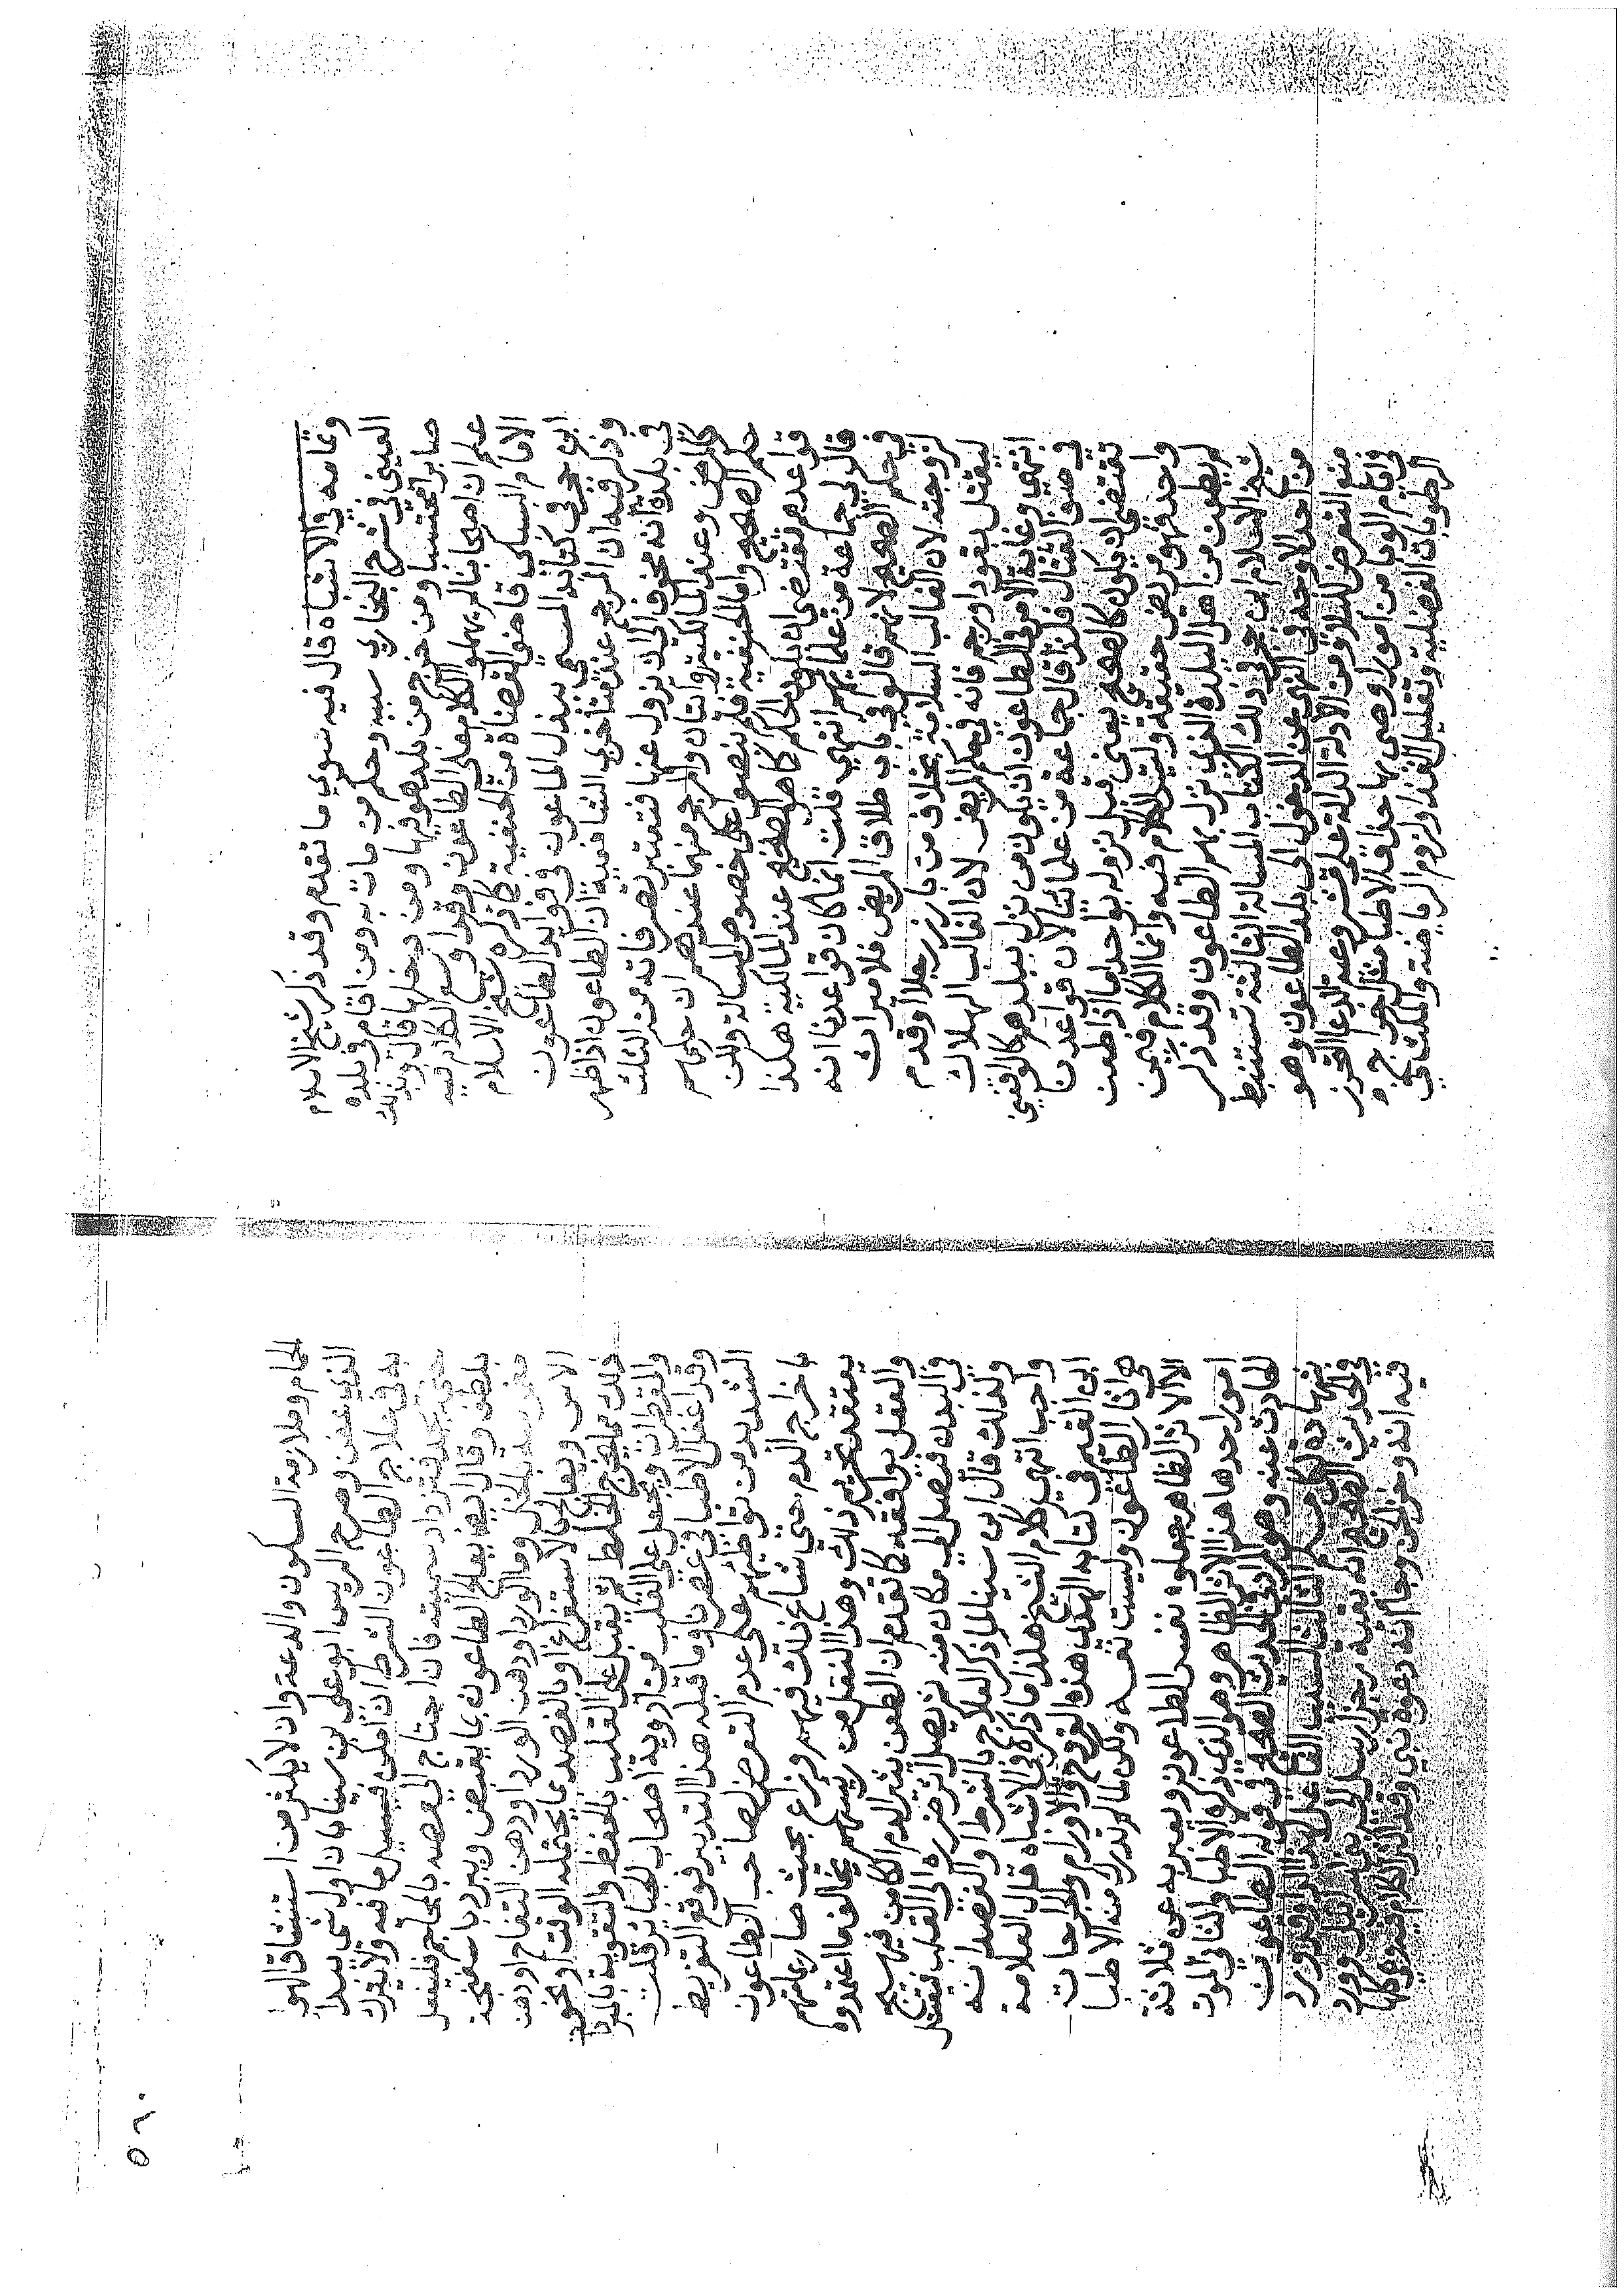 وتمامه في الاشباه قال فيه سوي ما تقدم وقد ذكر شيخ الاسلام
العيني في شرح البخاري سببه وحكم من مات به ومن اقام في بلده
صابرا محتسبا ومن خرج من بلد هو فيها ومن دخلها قال وبذلك
علم ان اصحابنا لم يهملوا الكلام على الطاعون وقد اوسع الكلام فيه
الامام السبكي قاضي القضاة من الحنفية كما ذكره شيخ الاسلام
ابن حجر في كتابه المسمي ببذل الماعون في فوايد الطاعون
وذكر فيه ان المرجح عند متأخري الشافعية ان الطاعون اذا ظهر
في بلدة انه مخوف الي ان يزول عنها فتعتبر تصرفاته من الثلث
كالمريض وعند المالكية روايتان والمرجح منهما عندهم ان حكمه
حكم الصحيح واما الحنفية فلم ينصوا على خصوص المسالة ولكن
قواعدهم تقتضي ان يكون الحكم كما هو المصحح عند المالكية هكذا
قال لي جماعة من علمائهم انتهي قلت انما كان قواعدنا انه
في حكم الصحيح لانهم قالوا في باب طلاق المريض فلا ميراث
لزوجته لان الغالب السلامة بخلاف من بارز رجلا او قدم
ليقتل بقود او رجم فانه في حكم المريض لان الغالب الهلاك
انتهي وغاية الامر في الطاعون ان يكون من نزل ببلدهم كالواقفين
في صف القتال فلذا قال جماعة من علمائنا لان قواعدنا
تقتضي ان يكون كالصحيح يعني قبل نزوله بواحد اما اذا طعن
واحد فهو مريض حقيقة وليس الكلام فيه وانما الكلام فيمن
لم يطعن من اهل البلدة الذي نزل بهم الطاعون وقد ذكر
شيخ الاسلام ابن حجر في ذلك الكتاب المسالة الثالثة تستنبط
من احد الاوجه في النهي عن الدخول الي بلد الطاعون وهو
منع التعرض للبلاء ومن الادلة الدالة على مشروعية الدعا التحرز
في ايام الوبا من امور اوصي بها حذاق الاطبا مثل اخراج
الرطوبات الفضلية وتقليل الغذا ولزوم الرياضة والمكث في
الحمام وملازمة السكون والدعة وان لا يكثر من استنشاق الهوا
الذي عفن وصرح الريس ابو علي بن سينا بان اول شي يبدا
به في علاج الطاعون الشرط ان امكن فيسيل ما فيه ولا يترك
حتي يجمد فتزداد سميته فان احتاج الي مصه بالمحاجم فليفعل
بلطف وقال ايضا يعالج الطاعون بما يقبض ويبرد باسفنجة
مغموسة بالخل وما الورد او دهن الورد او دهن التفاح او دهن
الاس ويعالج بالاستفراغ او بالفصد بما يحتمله الوقت او بنحو
ذلك مما يخرج الخلط ثم يقبل على القلب بالحفظ والتقوية بالمبردا
والمعطرات ويجعل على القلب من ادوية اصحاب الخفقان الحار قلت
وقد اغفل الاطبا في عصرنا وما قبله هذا التدبير فوقع التفريط
الشديد من تواطيهم على عدم التعرض لصاحب الطاعون
باخراج الدم حتي شاع ذلك فيهم وذاع بحيث صار عامتهم
يعتقد تحريم ذلك وهذا النقل من رييسهم يخالف ما اعتمدوه
والعقل يوافقه كما تقدم ان الطعن يثير الدم الكامن فيهيج
في البدن فيصل الي مكان منه ثم يصل اثر ضرره الي القلب فيقتل
ولذلك قال ابن سينا لما ذكر العلاج بالشرط او الفصد انه
واجب انتهي كلام الشيخ هكذا ما ذكره في الاشباه قال العلامة
ابن القيم في كتابه الهدي هذه القروح والاورام والجراحات
هي اثار الطاعون وليست نفسه ولكن لما لم تدرك منه الاطبا
الا الاثر الظاهر جعلوه نفس الطاعون ويعبر به عن ثلاثة
امور احدها هذا الاثر الظاهر وهو الذي ذكره الاطبا والثاني الموت
الحادث عنه وهو المراد في الحديث الصحيح في قوله الطاعون
شهادة لكل مسلم والثالث السبب الفاعل لهذا الداء وقد ورد
في الحديث الصحيح انه بقية رجز ارسل على بني اسرائيل وورد
فيه انه وخز الجن وجاء انه دعوة نبي